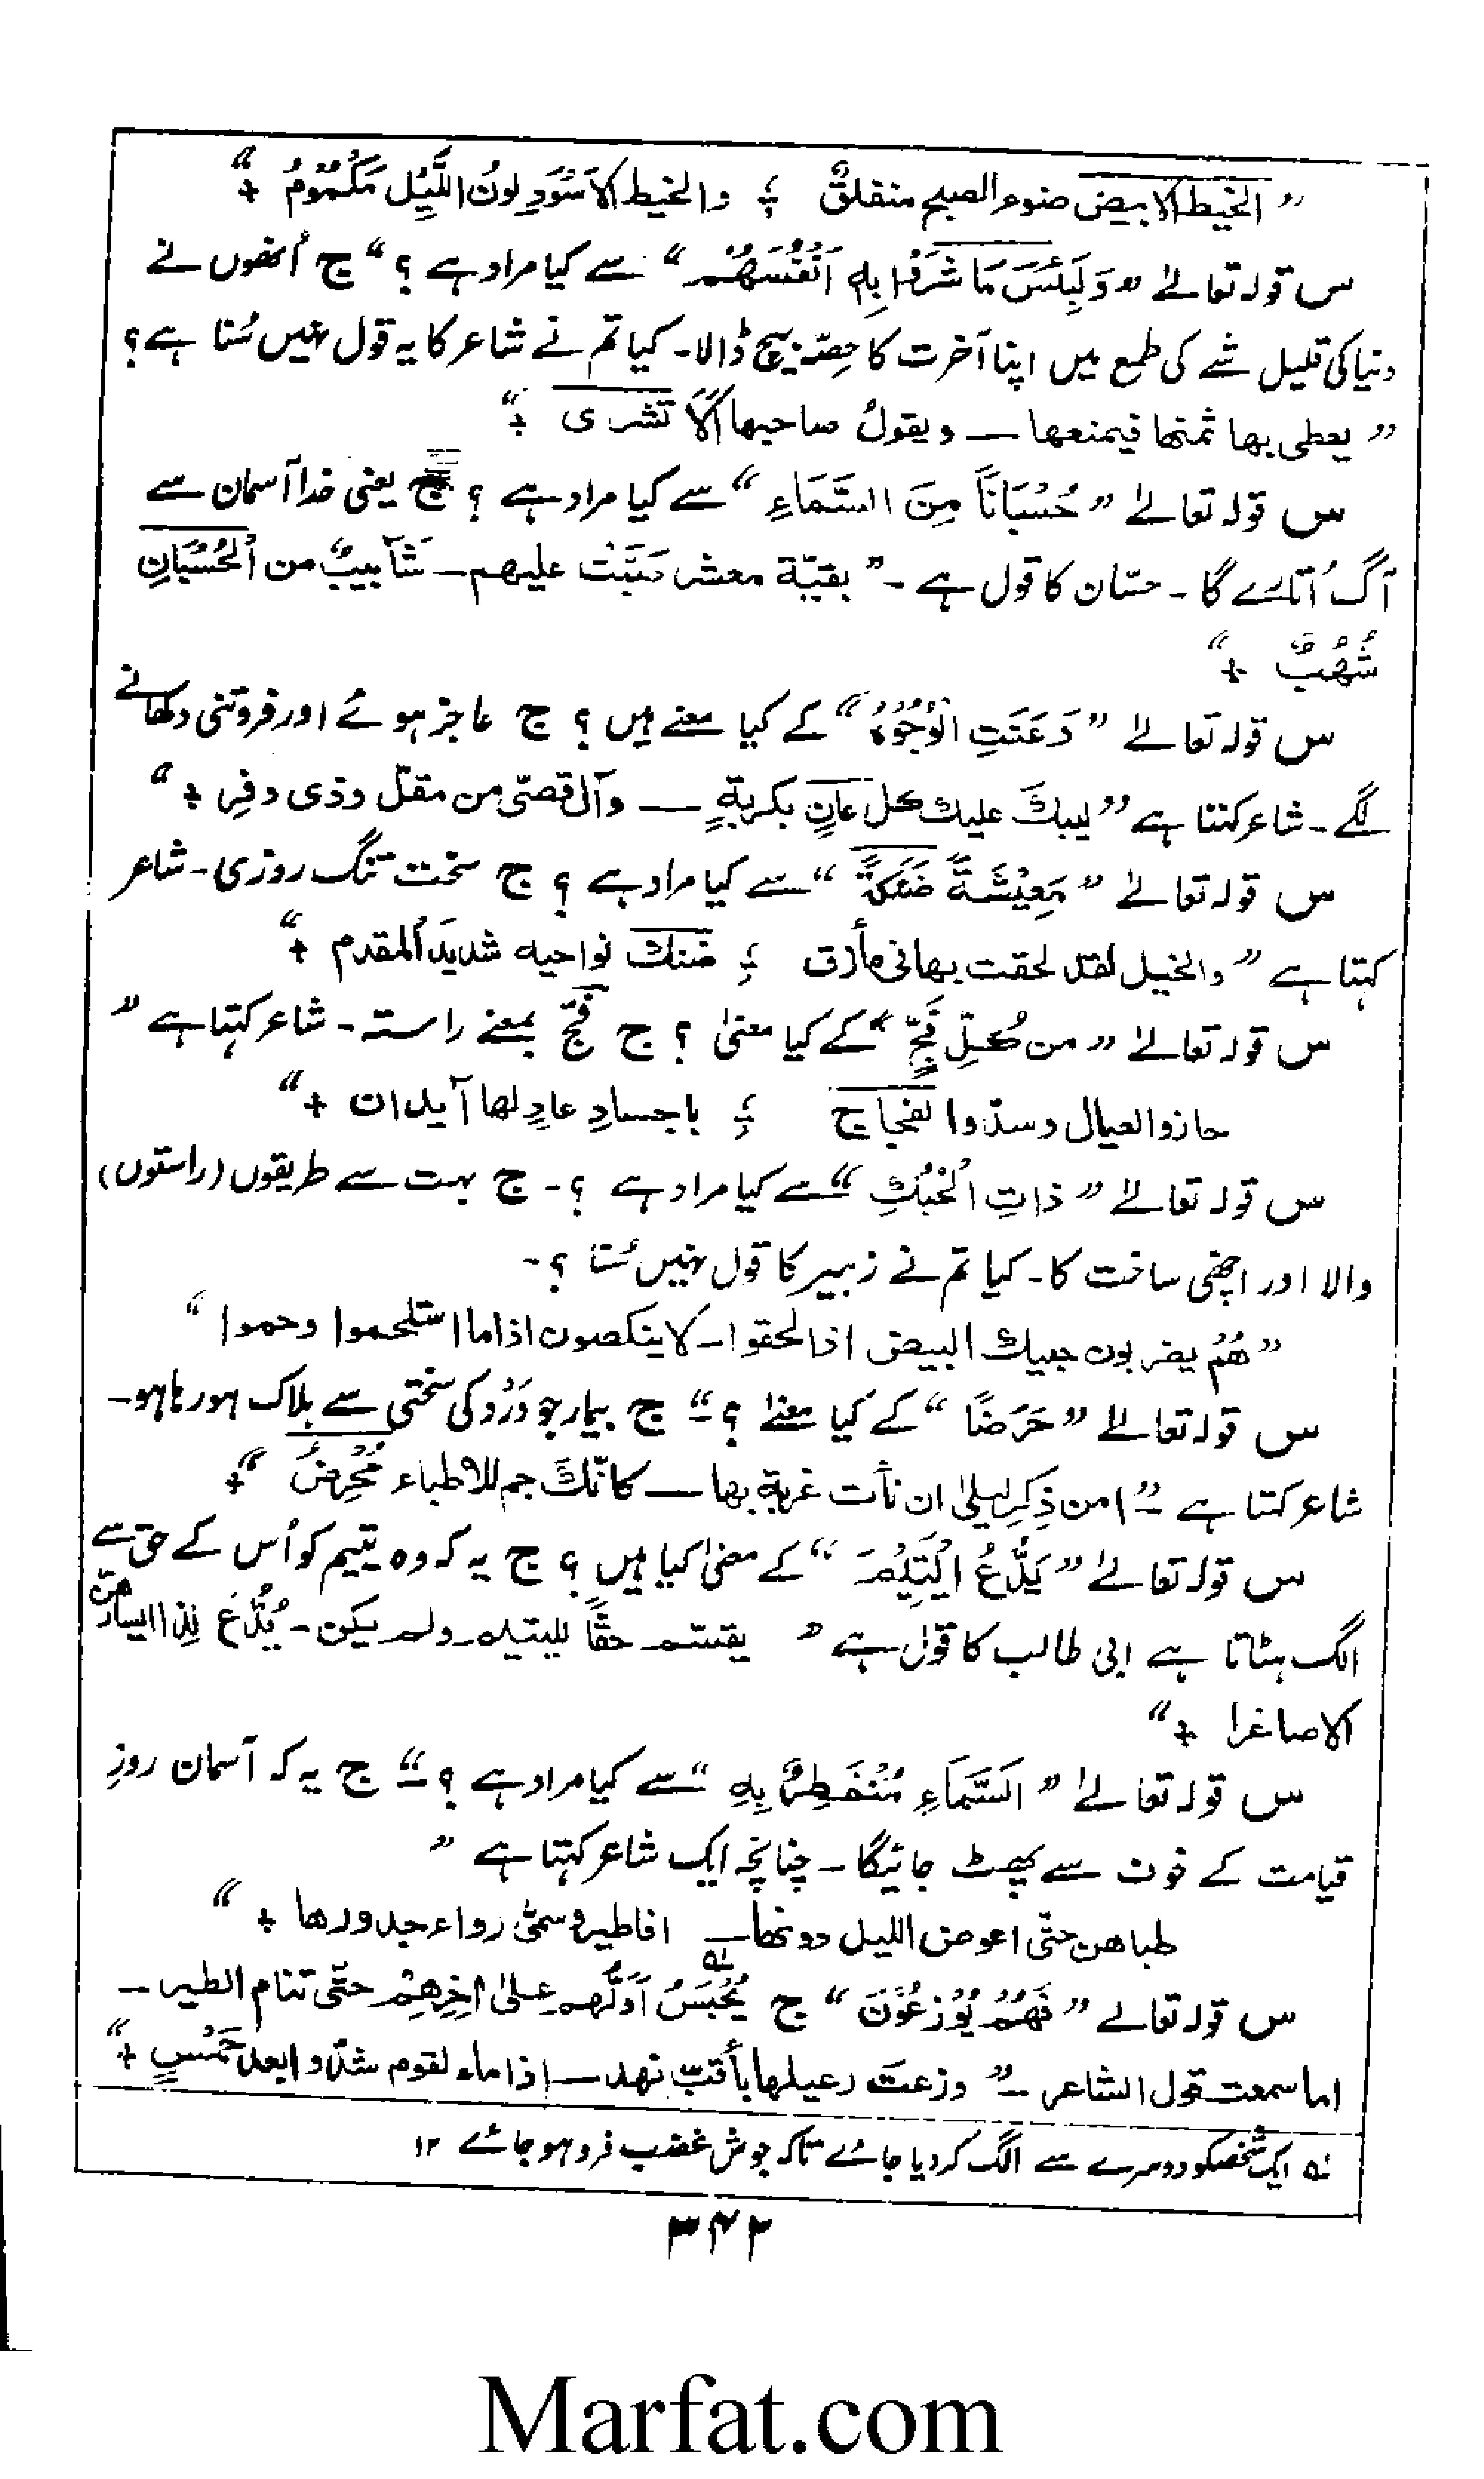 ” الخیط الابیض ضوء الصبح منفلقٌ ؛ والخیط الاَسْوَدِ لونُ اللَّیْلِ مَکْمُوْمُ + “
س قولہ تعالےٰ ” وَلَبِئْسَ مَا شَرَوْا بِہٖ اَنْفُسَھُمْ “ سے کیا مراد ہے ؟ “ ج اُنھوں نے
دنیا کی قلیل شے کی طمع میں اپنا آخرت کا حِصّہ بیچ ڈالا۔ کیا تم نے شاعر کا یہ قول نہیں سُنا ہے ؟
” یعطی بھا ثمنھا فیمنعھا — ویقولُ صاحبھا اَلَا تشری + “
س قولہ تعالےٰ ” حُسْبَانًا مِنَ السَّمَاءِ “ سے کیا مراد ہے ؟ ج یعنی خدا آسمان سے
آگ اُتارے گا ۔ حسّان کا قول ہے ۔ ” بقیّۃ معشر صُبَّتْ علیھم ۔ شَآبیبٌ من الْحُسْبَانِ
شُھُبٌ + “
س قولہ تعالےٰ ” وَعَنَتِ الْوُجُوْہُ “ کے کیا معنے ہیں ؟ ج عاجز ہوئے اور فروتنی دکھانے
لگے ۔ شاعر کہتا ہے ” لیبکَ علیك کل عَانٍ بکربۃٍ — وآل قصّی من مقلّ وذی وفِر + “
س قولہ تعالےٰ ” مَعِیْشَۃً ضَنْکَۃً “ سے کیا مراد ہے ؟ ج سخت تنگ روزی ۔ شاعر
کہتا ہے ” والخیل لقد لحقت بھا فی مأزق ؛ ضنك نواحیہ شدیدَ المقدم + “
س قولہ تعالےٰ ” من کُلِّ فَجٍّ “ کے کیا معنیٰ ؟ ج فَجّ بمعنے راستہ ۔ شاعر کہتا ہے ”
حازوا العیال وسدّوا لفجاج ؛ باجسادِ عادٍ لھا آیدان + “
س قولہ تعالےٰ ” ذاتِ الْحُبُكِ “ سے کیا مراد ہے ؟ ۔ ج بہت سے طریقوں (راستوں)
والا اور اچھی ساخت کا ۔ کیا تم نے زہیر کا قول نہیں سُنا ؟ ۔
” ھُمْ یضربون حبیك البیض اذا لحقوا ۔ لا ینکصون اذا ما استلحموا وحموا “
س قولہ تعالےٰ ” حَرَضًا “ کے کیا معنے ؟ “ ج بیمار جو دَرْد کی سختی سے ہلاک ہو رہا ہو ۔
شاعر کہتا ہے ” امن ذِکِر لیلیٰ ان نأت غربۃ بھا — کانّكَ جم للاطباء مُحْرِضُ + “
س قولہ تعالےٰ ” یَدُّعُ الْیَتِیْمَ “ کے معنیٰ کیا ہیں ؟ ج یہ کہ وہ یتیم کو اُس کے حق سے
الگ ہٹاتا ہے ابی طالب کا قول ہے ” یقسّم حقًّا للیتیم ولم یکن ۔ یُدُّعَ لذا ایسارھنّ
الاصاغرا + “
س قولہ تعالےٰ ” السَّمَاءِ مُنْفَطِرٌ بِہٖ “ سے کیا مراد ہے ؟ “ ج یہ کہ آسمان روزِ
قیامت کے خوف سے پھٹ جائیگا ۔ چنانچہ ایک شاعر کہتا ہے ”
طباھن حتّٰی اعوض اللیل دونھا — افاطیر وسمیّ رواء جدورھا + “
س قولہ تعالےٰ ” فَھُمْ یُوْزَعُوْنَ “ ج یُحْبَسُ اَوَّلُھم علیٰ اٰخِرِھِمْ حتّٰی تنام الطیر ۔
اما سمعت قول الشاعر ۔ ” وزعتَ رعیلھا بأقبّ نھد — اذا ماء لقوم شدّوا بعد خَمْسٍ + “
لہ ایک شخص کو دوسرے سے الگ کر دیا جائے تاکہ جوش غضب فرو ہو جائے ۱۲
۳۴۲
Marfat.com